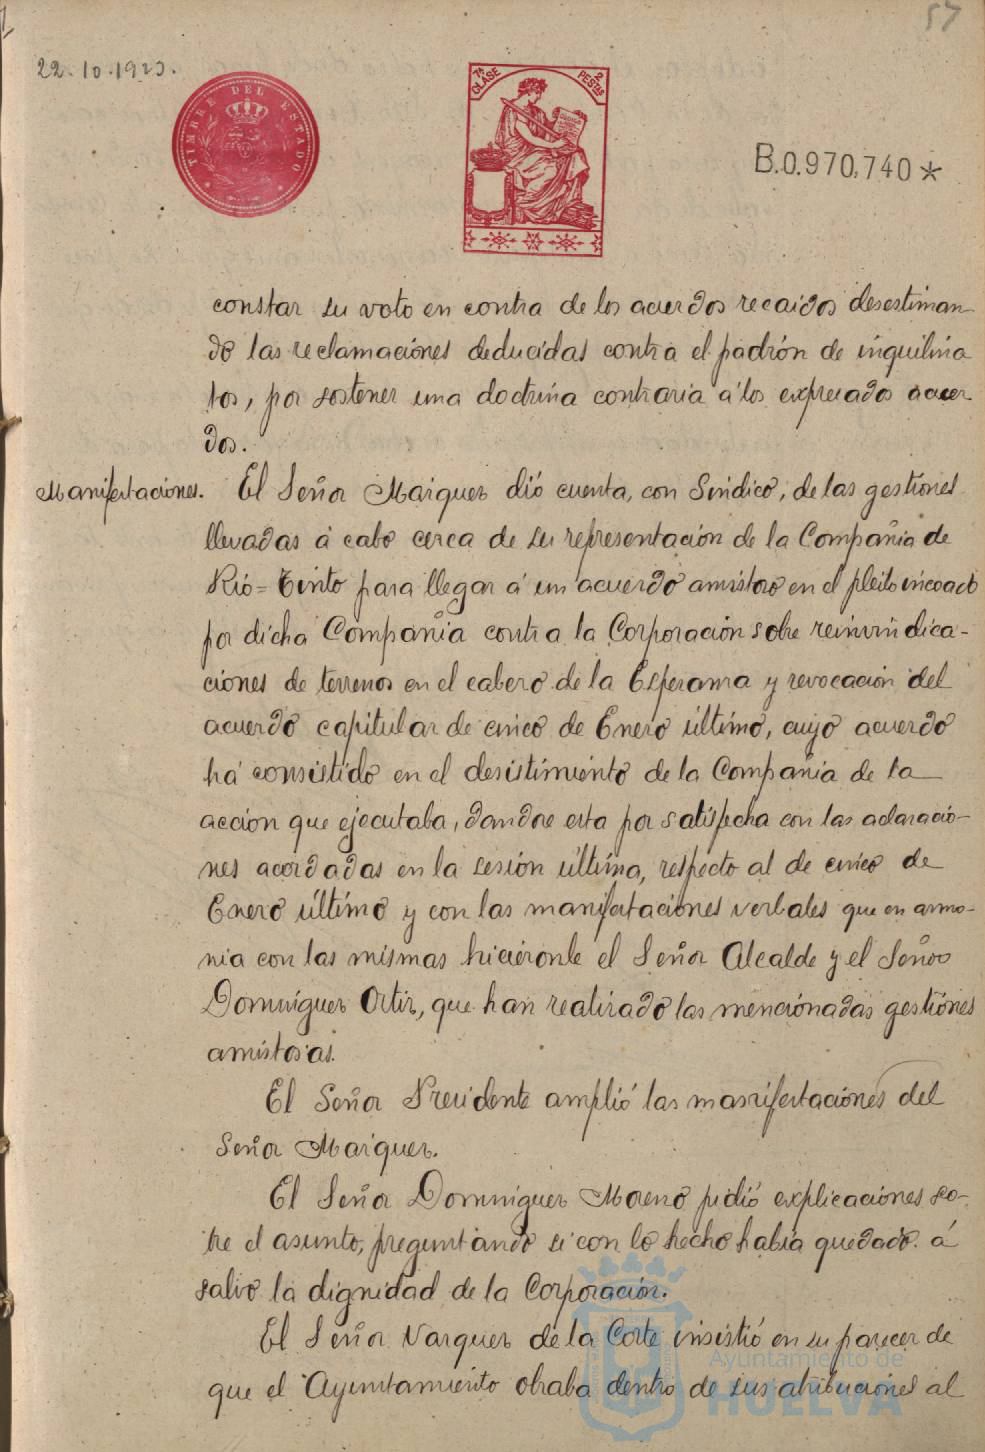 57
22.10.1923.
TIMBRE DEL ESTADO
7ª CLASE
2 PESTAS
B.0.970,740 *
constar su voto en contra de los acuerdos recaidos desestiman-
do las reclamaciones deducidas contra el padrón de inquilina
tos, por sostener una doctrina contraria á los expresados acuer
dos.
Manifestaciones. El Señor Marquez dió cuenta, con Sindico, de las gestiones
llevadas á cabo cerca de su representación de la Compañia de
Rio=Tinto para llegar á un acuerdo amistoso en el pleito incoado
por dicha Compañia contra la Corporación sobre reinvindica-
ciones de terrenos en el cabezo de la Esperanza y revocación del
acuerdo capitular de cinco de Enero último, cuyo acuerdo
há consistido en el desistimiento de la Compañia de la
acción que ejecutaba, dandose esta por satisfecha con las aclaracio-
nes acordadas en la sesión última, respecto al de cinco de
Enero último y con las manifestaciones verbales que en armo-
nia con las mismas hicieronle el Señor Alcalde y el Señor
Dominguez Ortiz, que han realizado las mencionadas gestiones
amistosas.
El Señor Presidente amplió las manifestaciones del
Señor Marquez.
El Señor Dominguez Moreno pidió explicaciones so-
bre el asunto, preguntando si con lo hecho habia quedado á
salvo la dignidad de la Corporación.
El Señor Vazquez de la Corte insistió en su parecer de
que el Ayuntamiento obraba dentro de sus atribuciones al
Ayuntamiento de
HUELVA